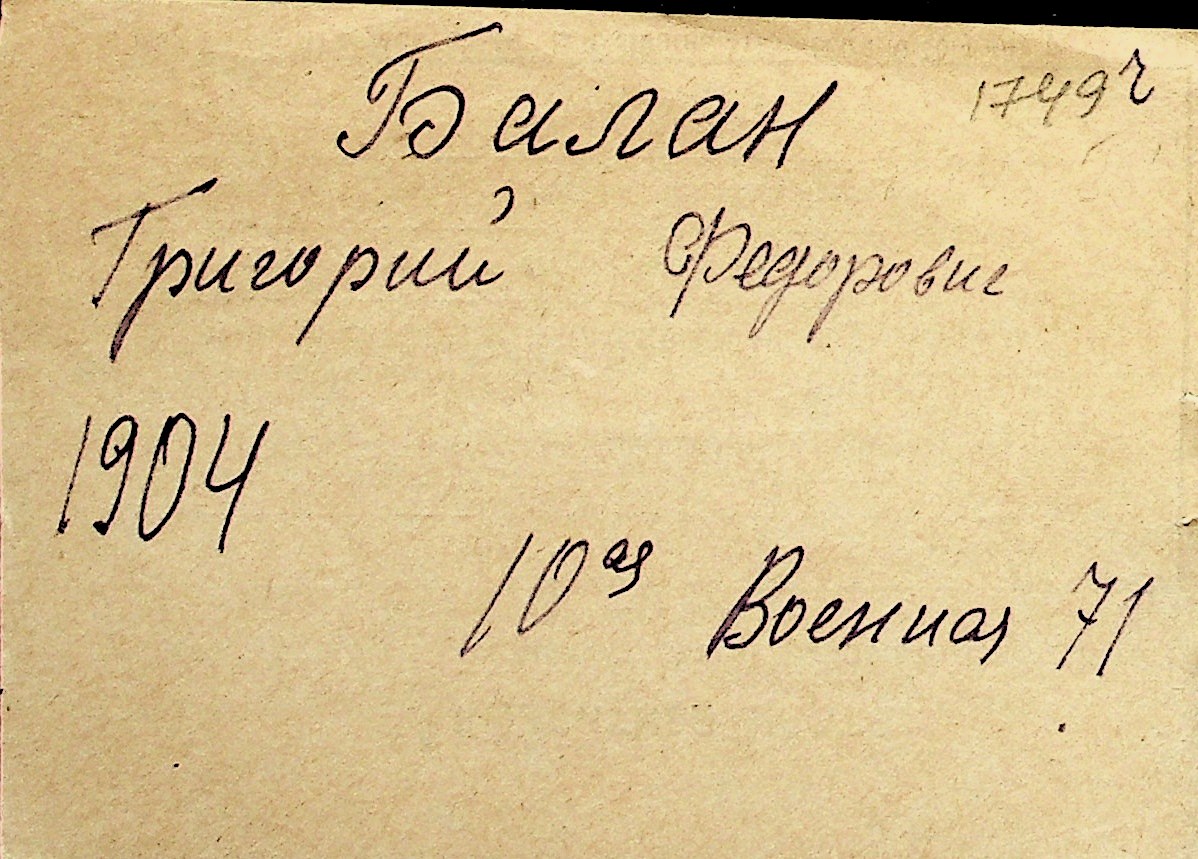 Балан
1749 ч
Григорий Федорович
1904
10ая Военная 71